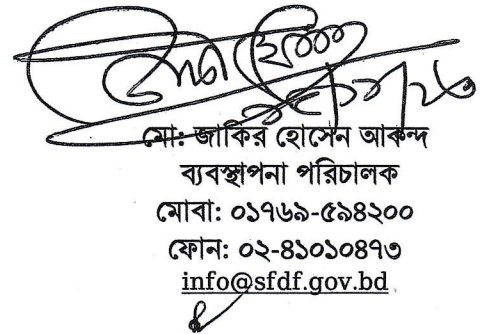 মো: জাকির হোসেন আকন্দ
ব্যবস্থাপনা পরিচালক
মোবা: ০১৭৬৯-৫৯৪২০০
ফোন: ০২-৪১০১০৪৭৩
info@sfdf.gov.bd